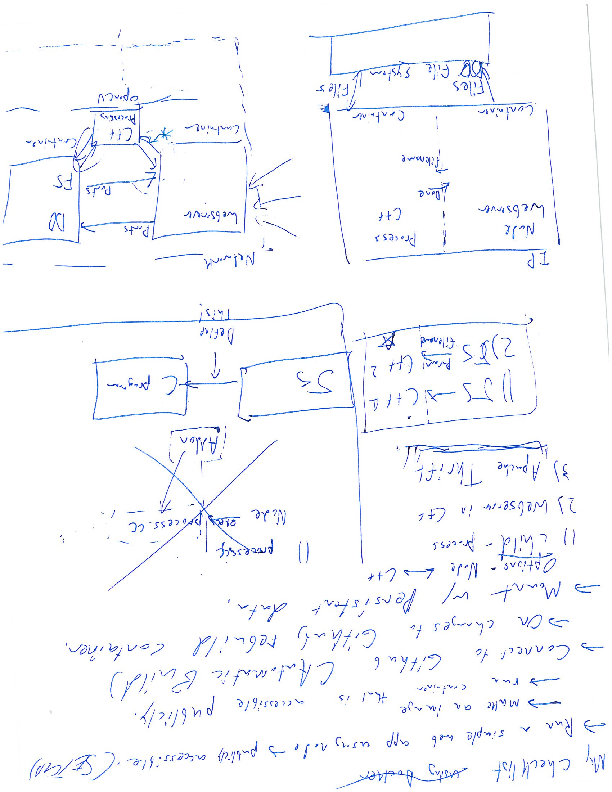 My Checklist using Docker
→ Run a simple web app using node → publicly accessible.
→ Make an image that is accessible publicly.
→ run container
→ Connect to Github (Automatic Build)
→ On changes to Github, rebuild container.
→ Mount w/ Persistent data.
Options - Node ↔ C++
1) Child - process
2) Webserver in C++
3) Apache Thrift
1) processes
Node uses process.cc
Addon
1) JS → C++ 1
2) JS C++ 2
filename
JS
C program
Define
this!
IP
Node
Webserver
Process
C++
Done
filename
Container
Container
Files
Files
File System
Network
Webserver
Ports
DD
Ports
FS
Container
C++
Process
Container
OpenCV